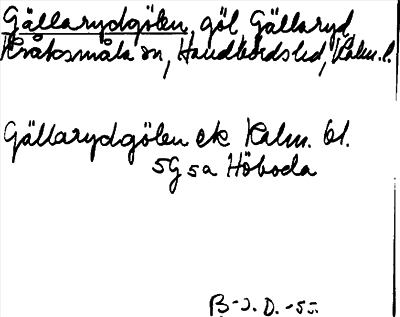 Gällarydgölen, göl Gällaryd,
Kråksmåla sn, Handbördshd, Kalm. l.
Gällarydgölen ek Kalm. bl.
5G 5a Höboda
B-J. D. -55